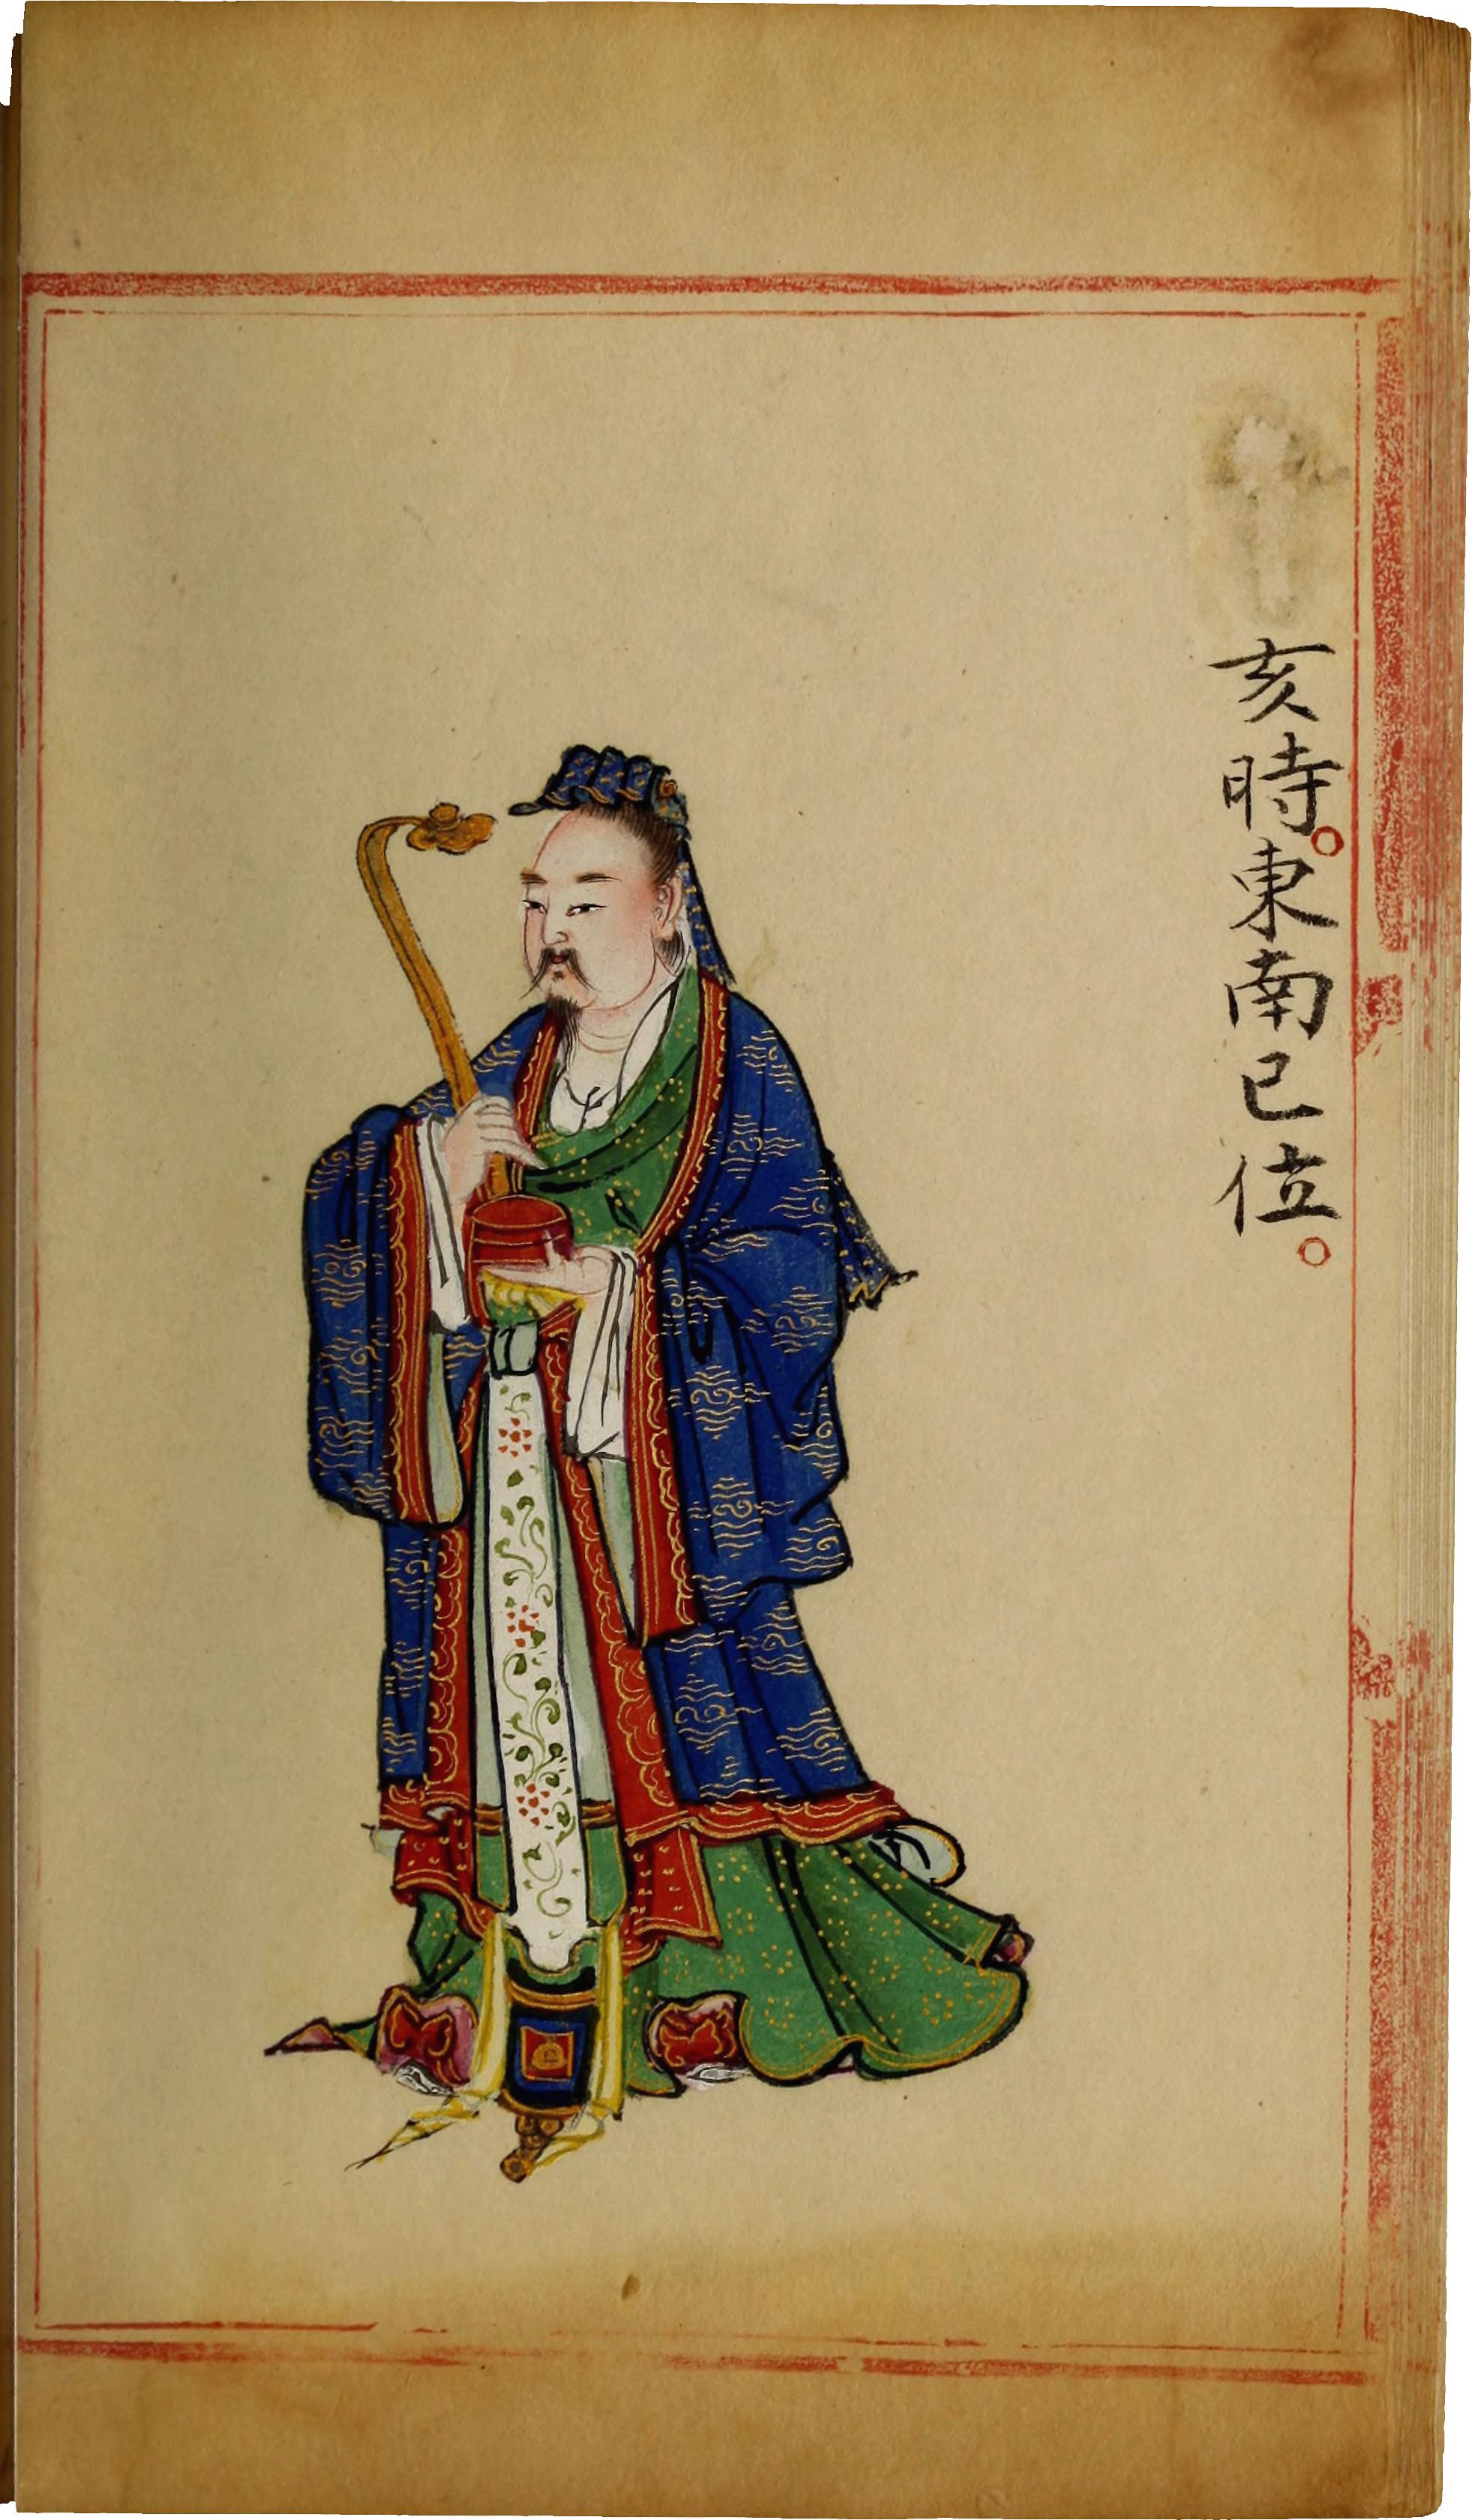 亥時。東南巳位。